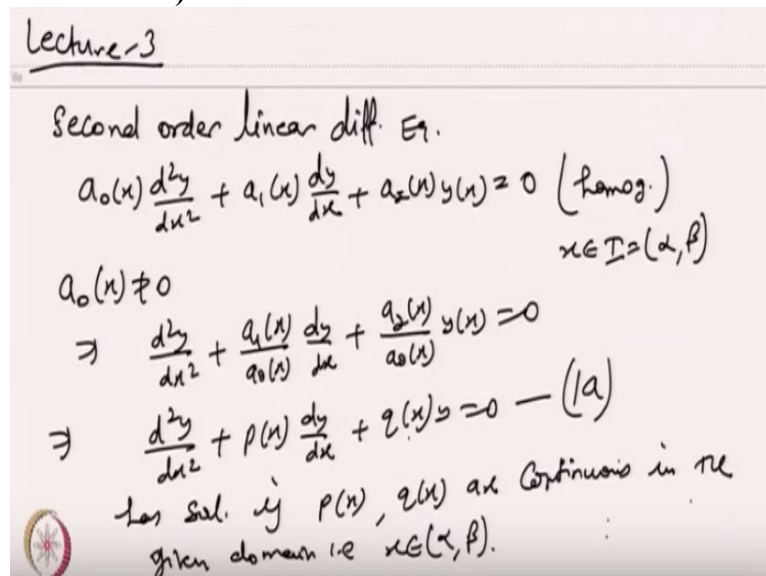 Lecture-3
Second order linear diff. Eq.
a₀(x) d²y/dx² + a₁(x) dy/dx + a₂(x) y(x) = 0 (homog.)
x ∈ I = (α, β)
a₀(x) ≠ 0
⇒ d²y/dx² + a₁(x)/a₀(x) dy/dx + a₂(x)/a₀(x) y(x) = 0
⇒ d²y/dx² + p(x) dy/dx + q(x) y = 0 — (1a)
has sol. if p(x), q(x) are Continuous in the
given domain i.e x ∈ (α, β).